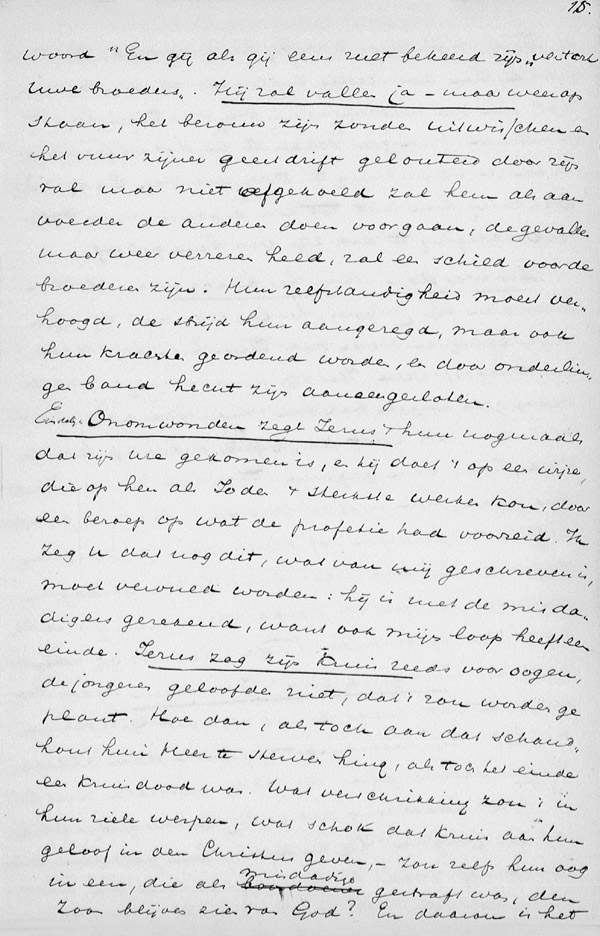 15.
woord "En gij als gij eens zult bekeerd zijn, versterk
uwe broeders". Hij zal vallen ja - maar weer op
staan, het berouw zijn zonde uitwisschen en
het vuur zijner geestdrift gelouterd door zijn
val maar niet afgekoeld zal hem als aan
voerder de anderen doen voorgaan, de gevallen
maar weer verrezen held, zal een schild voor de
broederen zijn. Hun zelfstandigheid moest ver-
hoogd, de strijd hun aangezegd, maar ook
hun krachten geordend worden, en door onderlin-
gen band hecht zijn aaneengesloten.
Eindelijk Onomwonden zegt Jezus 't hun nogmaals
dat zijn ure gekomen is, en hij doet 't op een wijze,
die op hen als Joden 't sterkste werken kon, door
een beroep op wat de profetie had voorzeid. Ik
zeg U dat nog dit, wat van mij geschreven is,
moet vervuld worden: hij is met de misda-
digers gerekend, want ook mijn loop heeft een
einde. Jezus zag zijn kruis reeds voor oogen,
de jongeren geloofden niet, dat 't zou worden ge
plant. Hoe dan, als toch aan dat schand-
hout hun Heer te sterven hing, als toch het einde
een kruisdood was. Wat verschrikking zou 't in
hun ziele werpen, wat schok dat kruis aan hun
geloof in den Christus geven, - zou zelfs hun oog
in een, die als misdadige gestraft was, den
Zoon blijven zien van God? En daarom is het